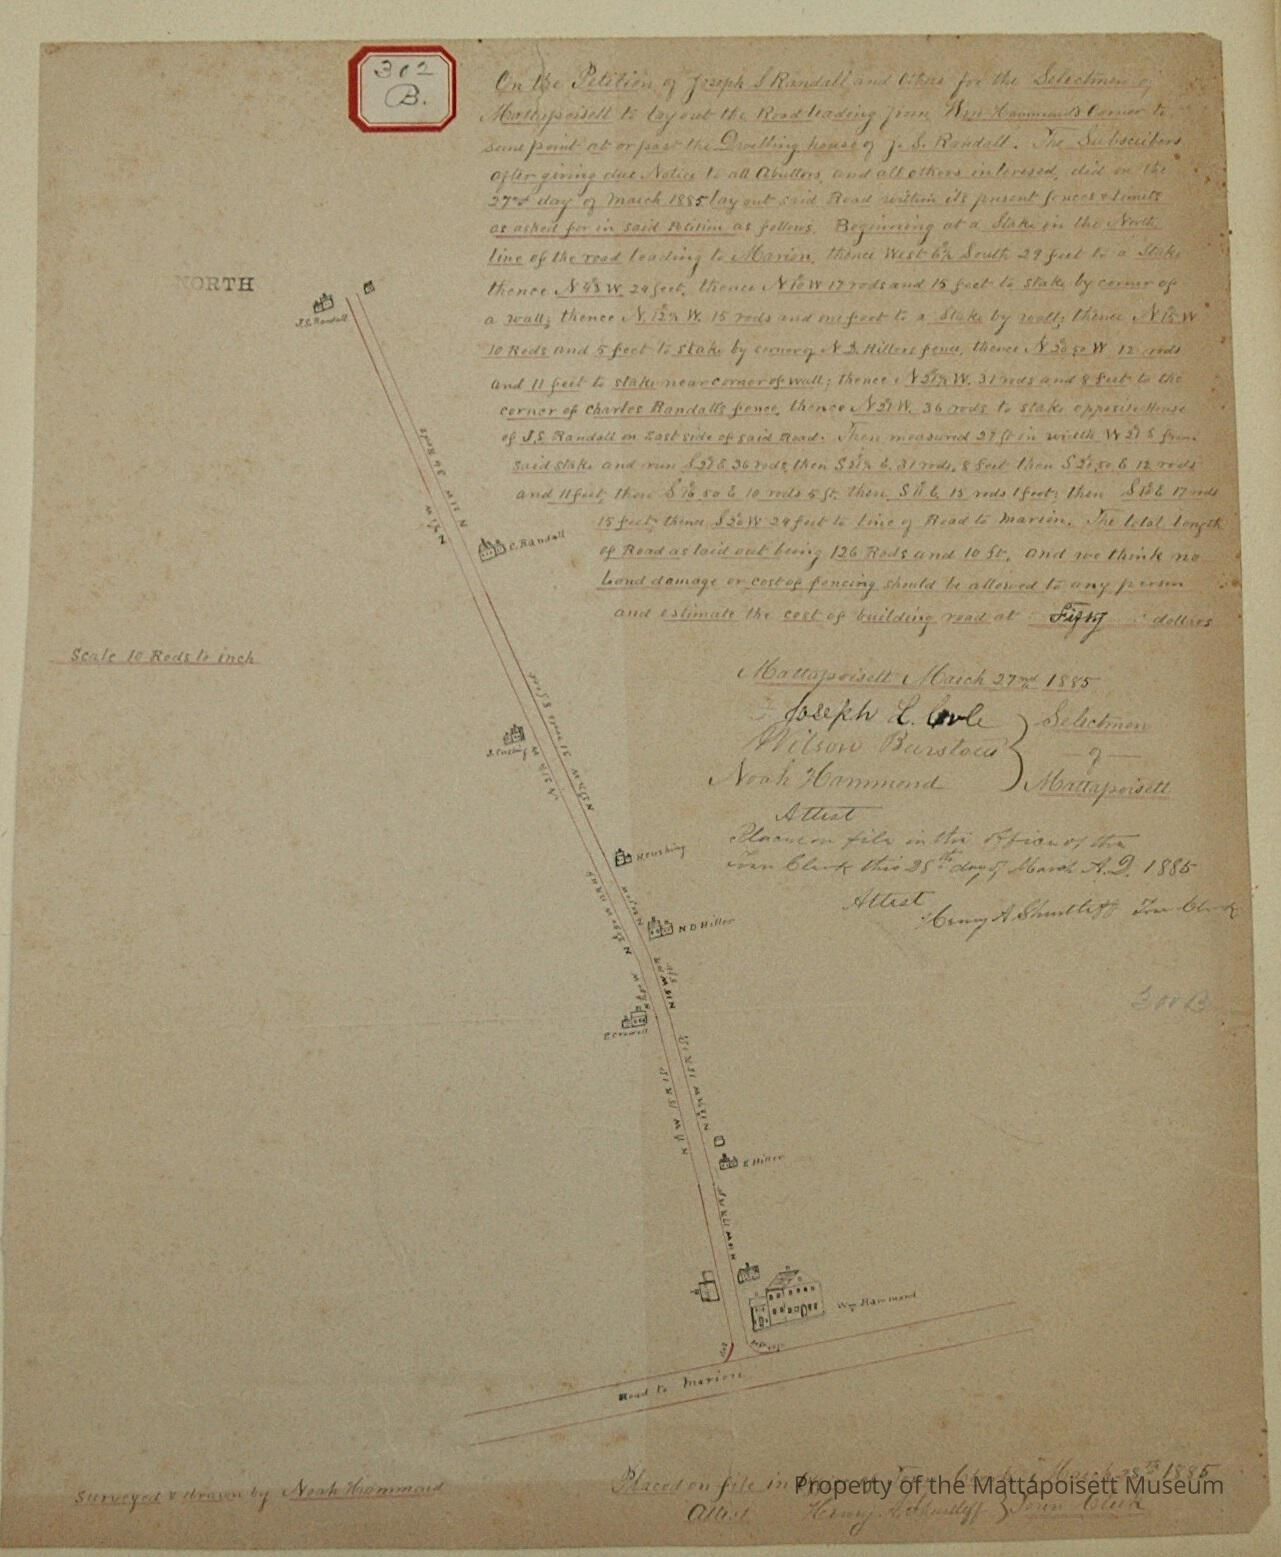 302
B.
On the Petition of Joseph S Randall and Others for the Selectmen of
Mattapoisett to lay out the Road leading from Wm Hammond's Corner to
some point at or past the Dwelling house of J. S. Randall. The Subscribers
after giving due Notice to all Abuttors, and all others interesed, did on the
27nd day of March 1885 lay out said Road within its present fences & limits
as asked for in said Petition as follows. Beginning at a Stake in the North
line of the road leading to Marion, thence West South 29 feet to a Stake
thence W. 24 feet, thence N 10 W 17 rods and 15 feet to stake by corner of
a wall; thence W. 15 rods and one foot to a Stake by wall; thence N 15 W
10 Rods and 5 feet to stake by corner of N D. Hillers fence, thence N 20 50 W 12 rods
and 11 feet to stake near corner of wall; thence W. 31 rods and 8 feet to the
corner of Charles Randall's fence, thence N 27 W. 36 rods to stake opposite House
of J,S. Randall on East side of said Road. Then measured 27 ft in width W 27 S from
said stake and run S 27 E 36 rods, then E. 31 rods, 8 feet then S 20,50, E 12 rods
and 11 feet, then 50 E 10 rods 5 ft. then S 11 E, 15 rods 1 foot; then S 10 E 17 rods
15 feet, thence S 20 W 24 feet to line of Road to Marion. The total length
of Road as laid out being 126 Rods and 10 ft. and we think no
Land damage or cost of fencing should be allowed to any person
and estimate the cost of building road at Fifty dollars
NORTH
J.S. Randall
36 Rods
C. Randall
Scale 10 Rods to inch
Mattapoisett March 27nd 1885
Joseph L. Cole
Wilson Barstow
Noah Hammond
Selectmen
of
Mattapoisett
31 rods 8 feet
S. Cushing
Attest
Placed on file in the office of the
Town Clerk this 28th day of March A.D. 1885
Attest
Henry A Shurtleff Town Clerk
H Cushing
N D Hiller
300 B
E Hiller
Wm Hammond
Road to Marion
Surveyed & drawn by Noah Hammond
Placed on file in March 28th 1885
Attest Henry A. Shurtleff Town Clerk
Property of the Mattapoisett Museum